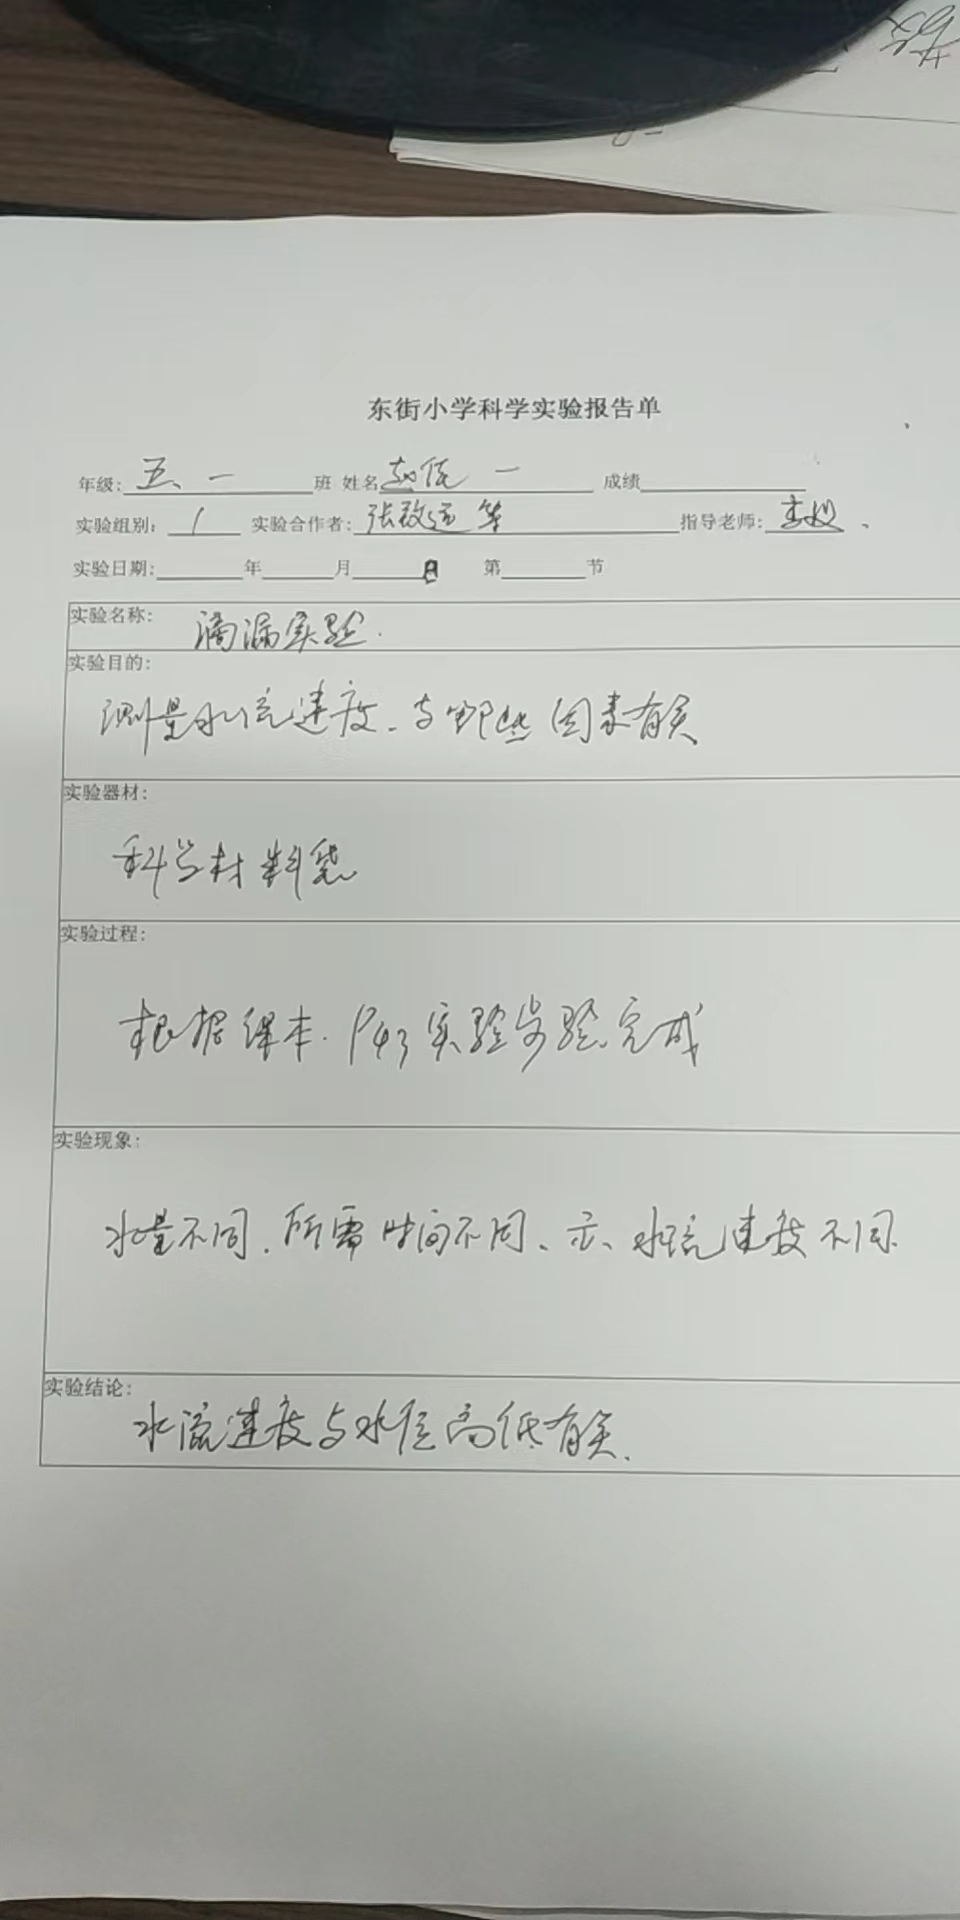 东街小学科学实验报告单
年级: 五、一 班 姓名 一 成绩
实验组别: 1 实验合作者: 张致远 等 指导老师: 李
实验日期: 年 月 日 第 节
实验名称: 滴漏实验.
实验目的:
测量水流速度、与哪些因素有关
实验器材:
科学材料袋
实验过程:
根据课本.P43实验步验完成
实验现象:
水量不同、所需时间不同、示、水流速度不同.
实验结论:
水流速度与水位高低有关.